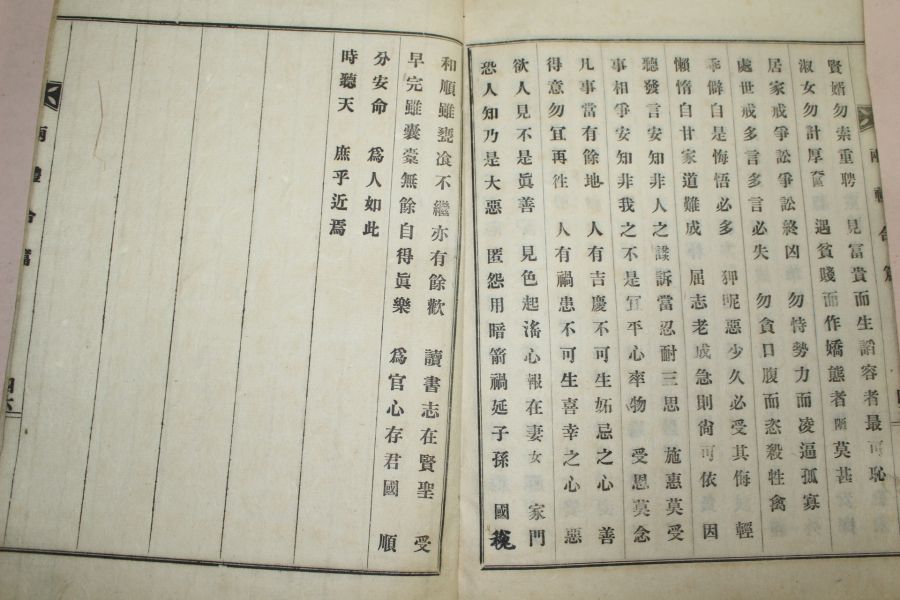 賢婿勿索重聘 見富貴而生諂容者最可恥
淑女勿計厚奩 遇貧賤而作嬌態者陋莫甚
居家戒爭訟爭訟終凶 勿恃勢力而凌逼孤寡
處世戒多言多言必失 勿貪口腹而恣殺牲禽
乖僻自是悔悟必多 狎昵惡少久必受其侮 輕
懶惰自甘家道難成 屈志老成急則尙可依 因
聽發言安知非人之譖訴當忍耐三思 施惠莫受
事相爭安知非我之不是宜平心率物 受恩莫念
凡事當有餘地 人有吉慶不可生妬忌之心 善
得意勿冝再徃 人有禍患不可生喜幸之心 惡
欲人見不是眞善 見色起滛心報在妻女 家門
恐人知乃是大惡 匿怨用暗箭禍延子孫 國稅
和順雖甕飡不繼亦有餘歡 讀書志在賢聖 受
早完雖囊槖無餘自得眞樂 爲官心存君國 順
分安命 爲人如此
時聽天 庶乎近焉
四六